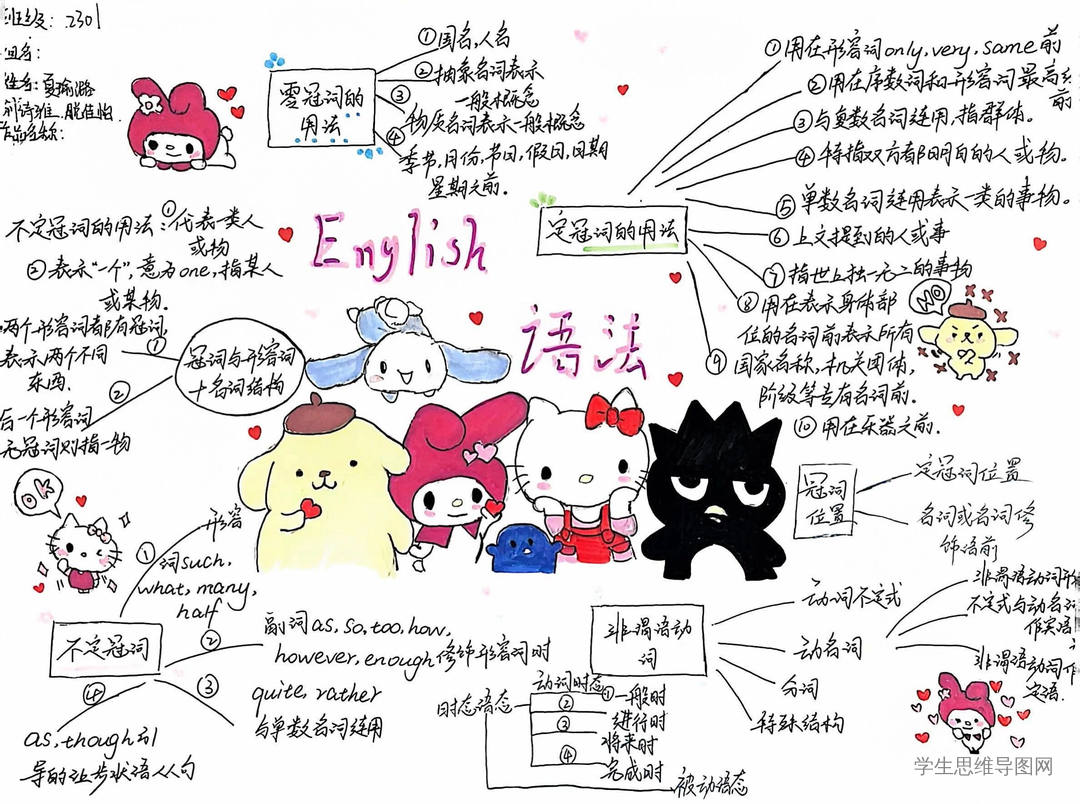 班级:2301
组名:
姓名:夏瑜潞
作品名称:
零冠词的
用法
①国名,人名
②抽象名词表示
一般概念
③物质名词表示一般概念
④季节,月份,节日,假日,日期
星期之前.
English
语法
定冠词的用法
①用在形容词only,very,same前
②用在序数词和形容词最高级
前
③与复数名词连用,指群体。
④特指双方都明白的人或物。
⑤单数名词连用表示一类的事物。
⑥上文提到的人或事
⑦指世上独一无二的事物
⑧用在表示身体部
位的名词前表示所有
⑨国家名称,机关团体,
阶级等专有名词前.
⑩用在乐器之前.
NO
不定冠词的用法:①代表一类人
或物
②表示“一个”,意为one,指某人
或某物.
冠词与形容词
十名词结构
①两个形容词都有冠词,
表示两个不同
东西.
②后一个形容词
无冠词则指一物
OK
冠词
位置
定冠词位置
名词或名词修
饰语前
不定冠词
①形容
词such,
what,many,
half
②副词as,so,too,how,
however,enough修饰形容词时
③quite,rather
与单数名词连用
④as,though引
导的让步状语从句
时态语态
动词时态
①一般时
②进行时
③将来时
④完成时
被动语态
非谓语动
词
动词不定式
动名词
分词
特殊结构
非谓语动词
不定式与动名词
作宾语
非谓语动词作
定语.
学生思维导图网